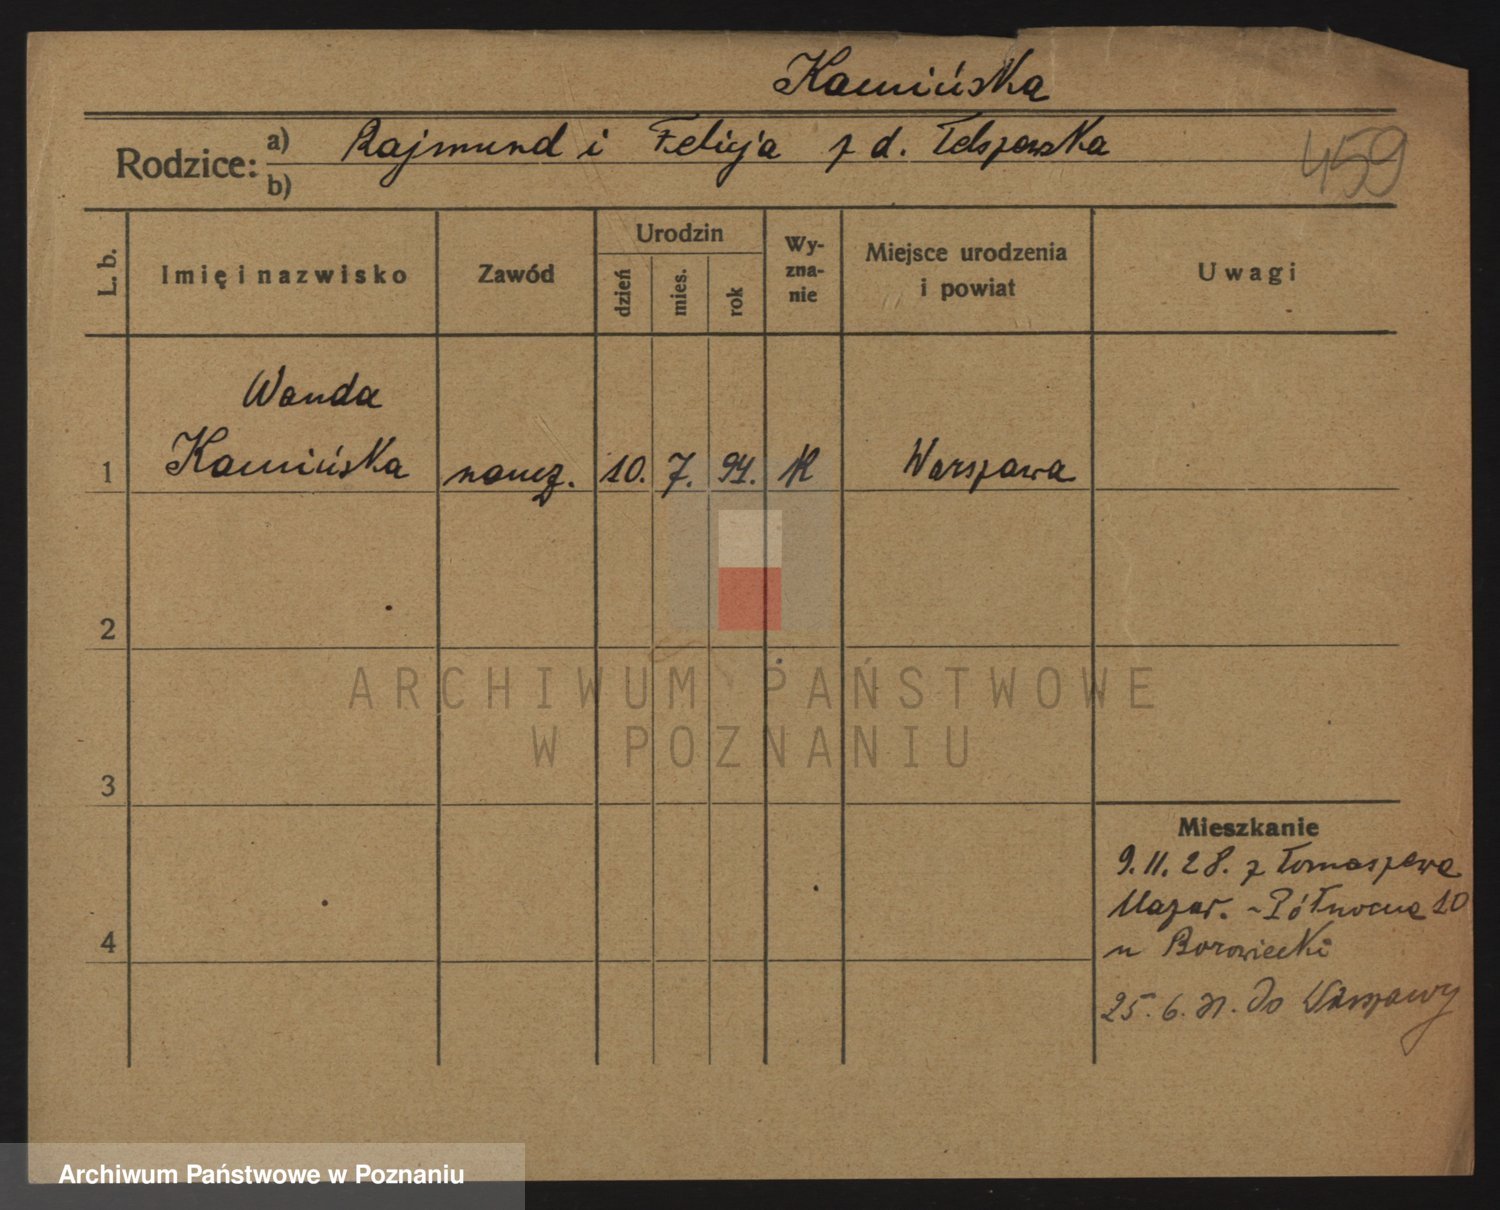 Kamińska
Rodzice: a) Rajmund i Felicja z d. Telszewska
b)
459
L. b.
Imię i nazwisko
Zawód
Urodzin
dzień
mies.
rok
Wy-
zna-
nie
Miejsce urodzenia
i powiat
Uwagi
Wanda
1 Kamińska naucz. 10. 7. 94. K Warszawa
2
ARCHIWUM PAŃSTWOWE
W POZNANIU
3
Mieszkanie
9.11.28. z Tomaszowa
Mazow. - Północna 10
4
u Borowiecki
25.6.31. do Warszawy
Archiwum Państwowe w Poznaniu